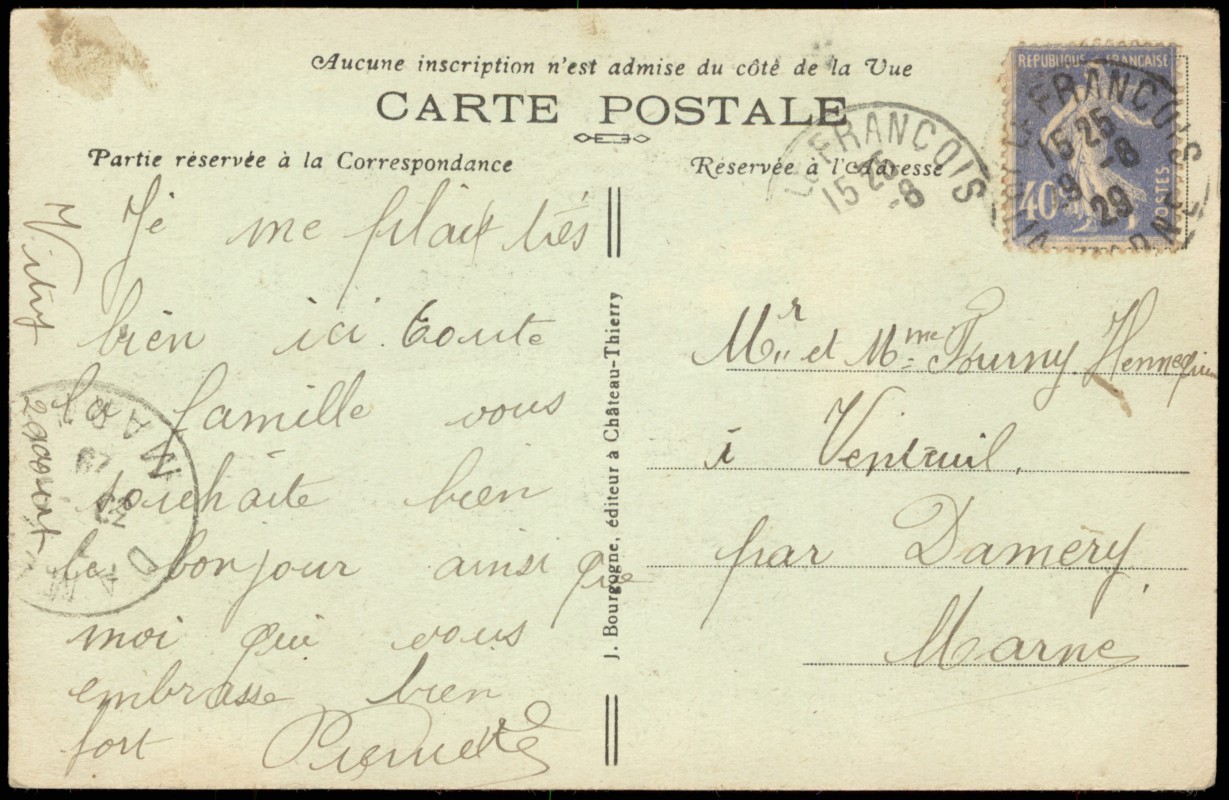 Aucune inscription n'est admise du côté de la Vue
CARTE POSTALE
Partie réservée à la Correspondance
Réservée à l'Adresse
Vitry
2 aout
Je me plait très
bien ici. Toute
la famille vous
souhaite bien
le bonjour ainsi que
moi qui vous
embrasse bien
fort Pierrette
J. Bourgogne, éditeur à Château-Thierry
RÉPUBLIQUE FRANÇAISE
40
POSTES
FRANÇOIS
15 25
-8
29
LE FRANÇOIS
15 25
-8
Mr et Mme Fourny Hennequin
à Venteuil,
par Damery,
Marne